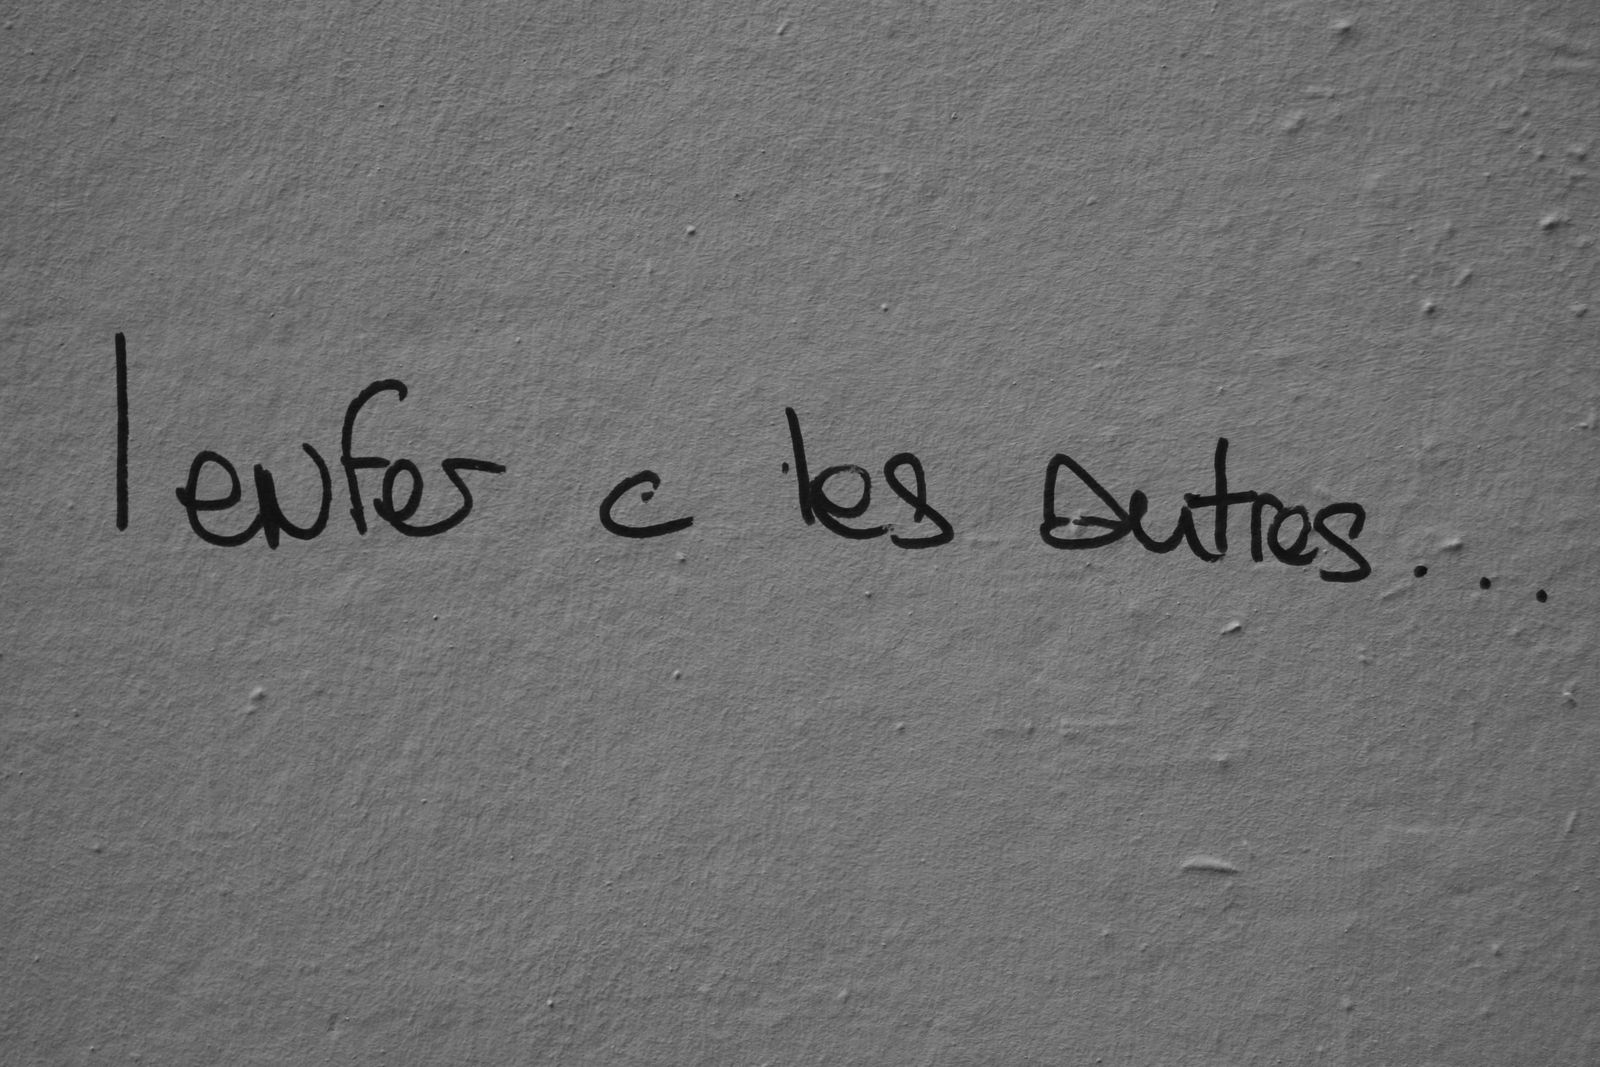 l enfer c les autres...